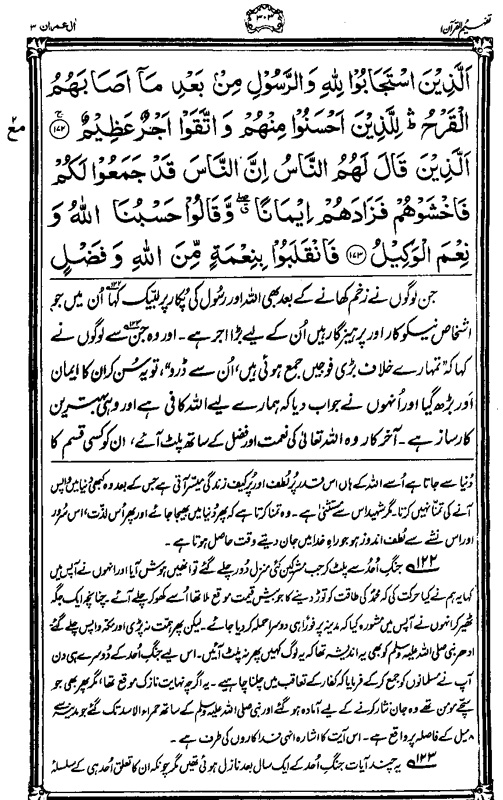 تفہیم القرآن ۱
۳۰۳
اٰل عمران ۳
اَلَّذِيْنَ اسْتَجَابُوْا لِلّٰهِ وَالرَّسُوْلِ مِنْۢ بَعْدِ مَاۤ اَصَابَهُمُ
الْقَرْحُ ۛؕ لِلَّذِيْنَ اَحْسَنُوْا مِنْهُمْ وَاتَّقَوْا اَجْرٌ عَظِيْمٌ ۚ﴿۱۷۲﴾
اَلَّذِيْنَ قَالَ لَهُمُ النَّاسُ اِنَّ النَّاسَ قَدْ جَمَعُوْا لَكُمْ
فَاخْشَوْهُمْ فَزَادَهُمْ اِيْمَانًا ۖۗ وَّقَالُوْا حَسْبُنَا اللّٰهُ وَ
نِعْمَ الْوَكِيْلُ ﴿۱۷۳﴾ فَانْقَلَبُوْا بِنِعْمَةٍ مِّنَ اللّٰهِ وَفَضْلٍ
جن لوگوں نے زخم کھانے کے بعد بھی اللہ اور رسول کی پکار پر لبیک کہا ۱۲۲؎ اُن میں جو
اشخاص نیکوکار اور پرہیزگار ہیں اُن کے لیے بڑا اجر ہے۔ اور وہ جن ۱۲۳؎ سے لوگوں نے
کہا کہ ”تمہارے خلاف بڑی فوجیں جمع ہوئی ہیں، اُن سے ڈرو“، تو یہ سُن کر ان کا ایمان
اور بڑھ گیا اور اُنہوں نے جواب دیا کہ ہمارے لیے اللہ کافی ہے اور وہی بہترین
کارساز ہے۔ آخرکار وہ اللہ تعالیٰ کی نعمت اور فضل کے ساتھ پلٹ آئے، ان کو کسی قسم کا
دُنیا سے جاتا ہے اُسے اللہ کے ہاں اس قدر پُر لطف اور پُر کیف زندگی میسّر آتی ہے جس کے بعد وہ کبھی دُنیا میں واپس
آنے کی تمنّا نہیں کرتا۔ مگر شہید اس سے مستثنیٰ ہے۔ وہ تمنا کرتا ہے کہ پھر دُنیا میں بھیجا جائے اور پھر اُس لذّت، اس سُرور
اور اس نشے سے لطف اندوز ہو جو راہِ خدا میں جان دیتے وقت حاصل ہوتا ہے۔
۱۲۲؎ جنگِ اُحد سے پلٹ کر جب مشرکین کئی منزل دُور چلے گئے تو انھیں ہوش آیا اور انہوں نے آپس میں
کہا یہ ہم نے کیا حرکت کی کہ محمدؐ کی طاقت کو توڑ دینے کا جو بیش قیمت موقع ملا تھا اُسے کھو کر چلے آئے۔ چنانچہ ایک جگہ
ٹھیر کر انہوں نے آپس میں مشورہ کیا کہ مدینہ پر فوراً ہی دوسرا حملہ کر دیا جائے۔ لیکن پھر ہمت نہ پڑی اور مکہ واپس چلے گئے
ادھر نبی صلی اللہ علیہ وسلم کو بھی یہ اندیشہ تھا کہ یہ لوگ کہیں پھر نہ پلٹ آئیں۔ اس لیے جنگ اُحد کے دُوسرے ہی دن
آپ نے مسلمانوں کو جمع کر کے فرمایا کہ کفار کے تعاقب میں چلنا چاہیے۔ یہ اگرچہ نہایت نازک موقع تھا، مگر پھر بھی جو
سچّے مومن تھے وہ جان نثار کرنے کے لیے آمادہ ہو گئے اور نبی صلی اللہ علیہ وسلم کے ساتھ حمراء الاسد تک گئے جو مدینہ سے
۸ میل کے فاصلہ پر واقع ہے۔ اس آیت کا اشارہ انہی فدا کاروں کی طرف ہے۔
۱۲۳؎ یہ چند آیات جنگِ اُحد کے ایک سال بعد نازل ہوئی تھیں مگر چونکہ ان کا تعلق اُحد ہی کے سلسلۂ